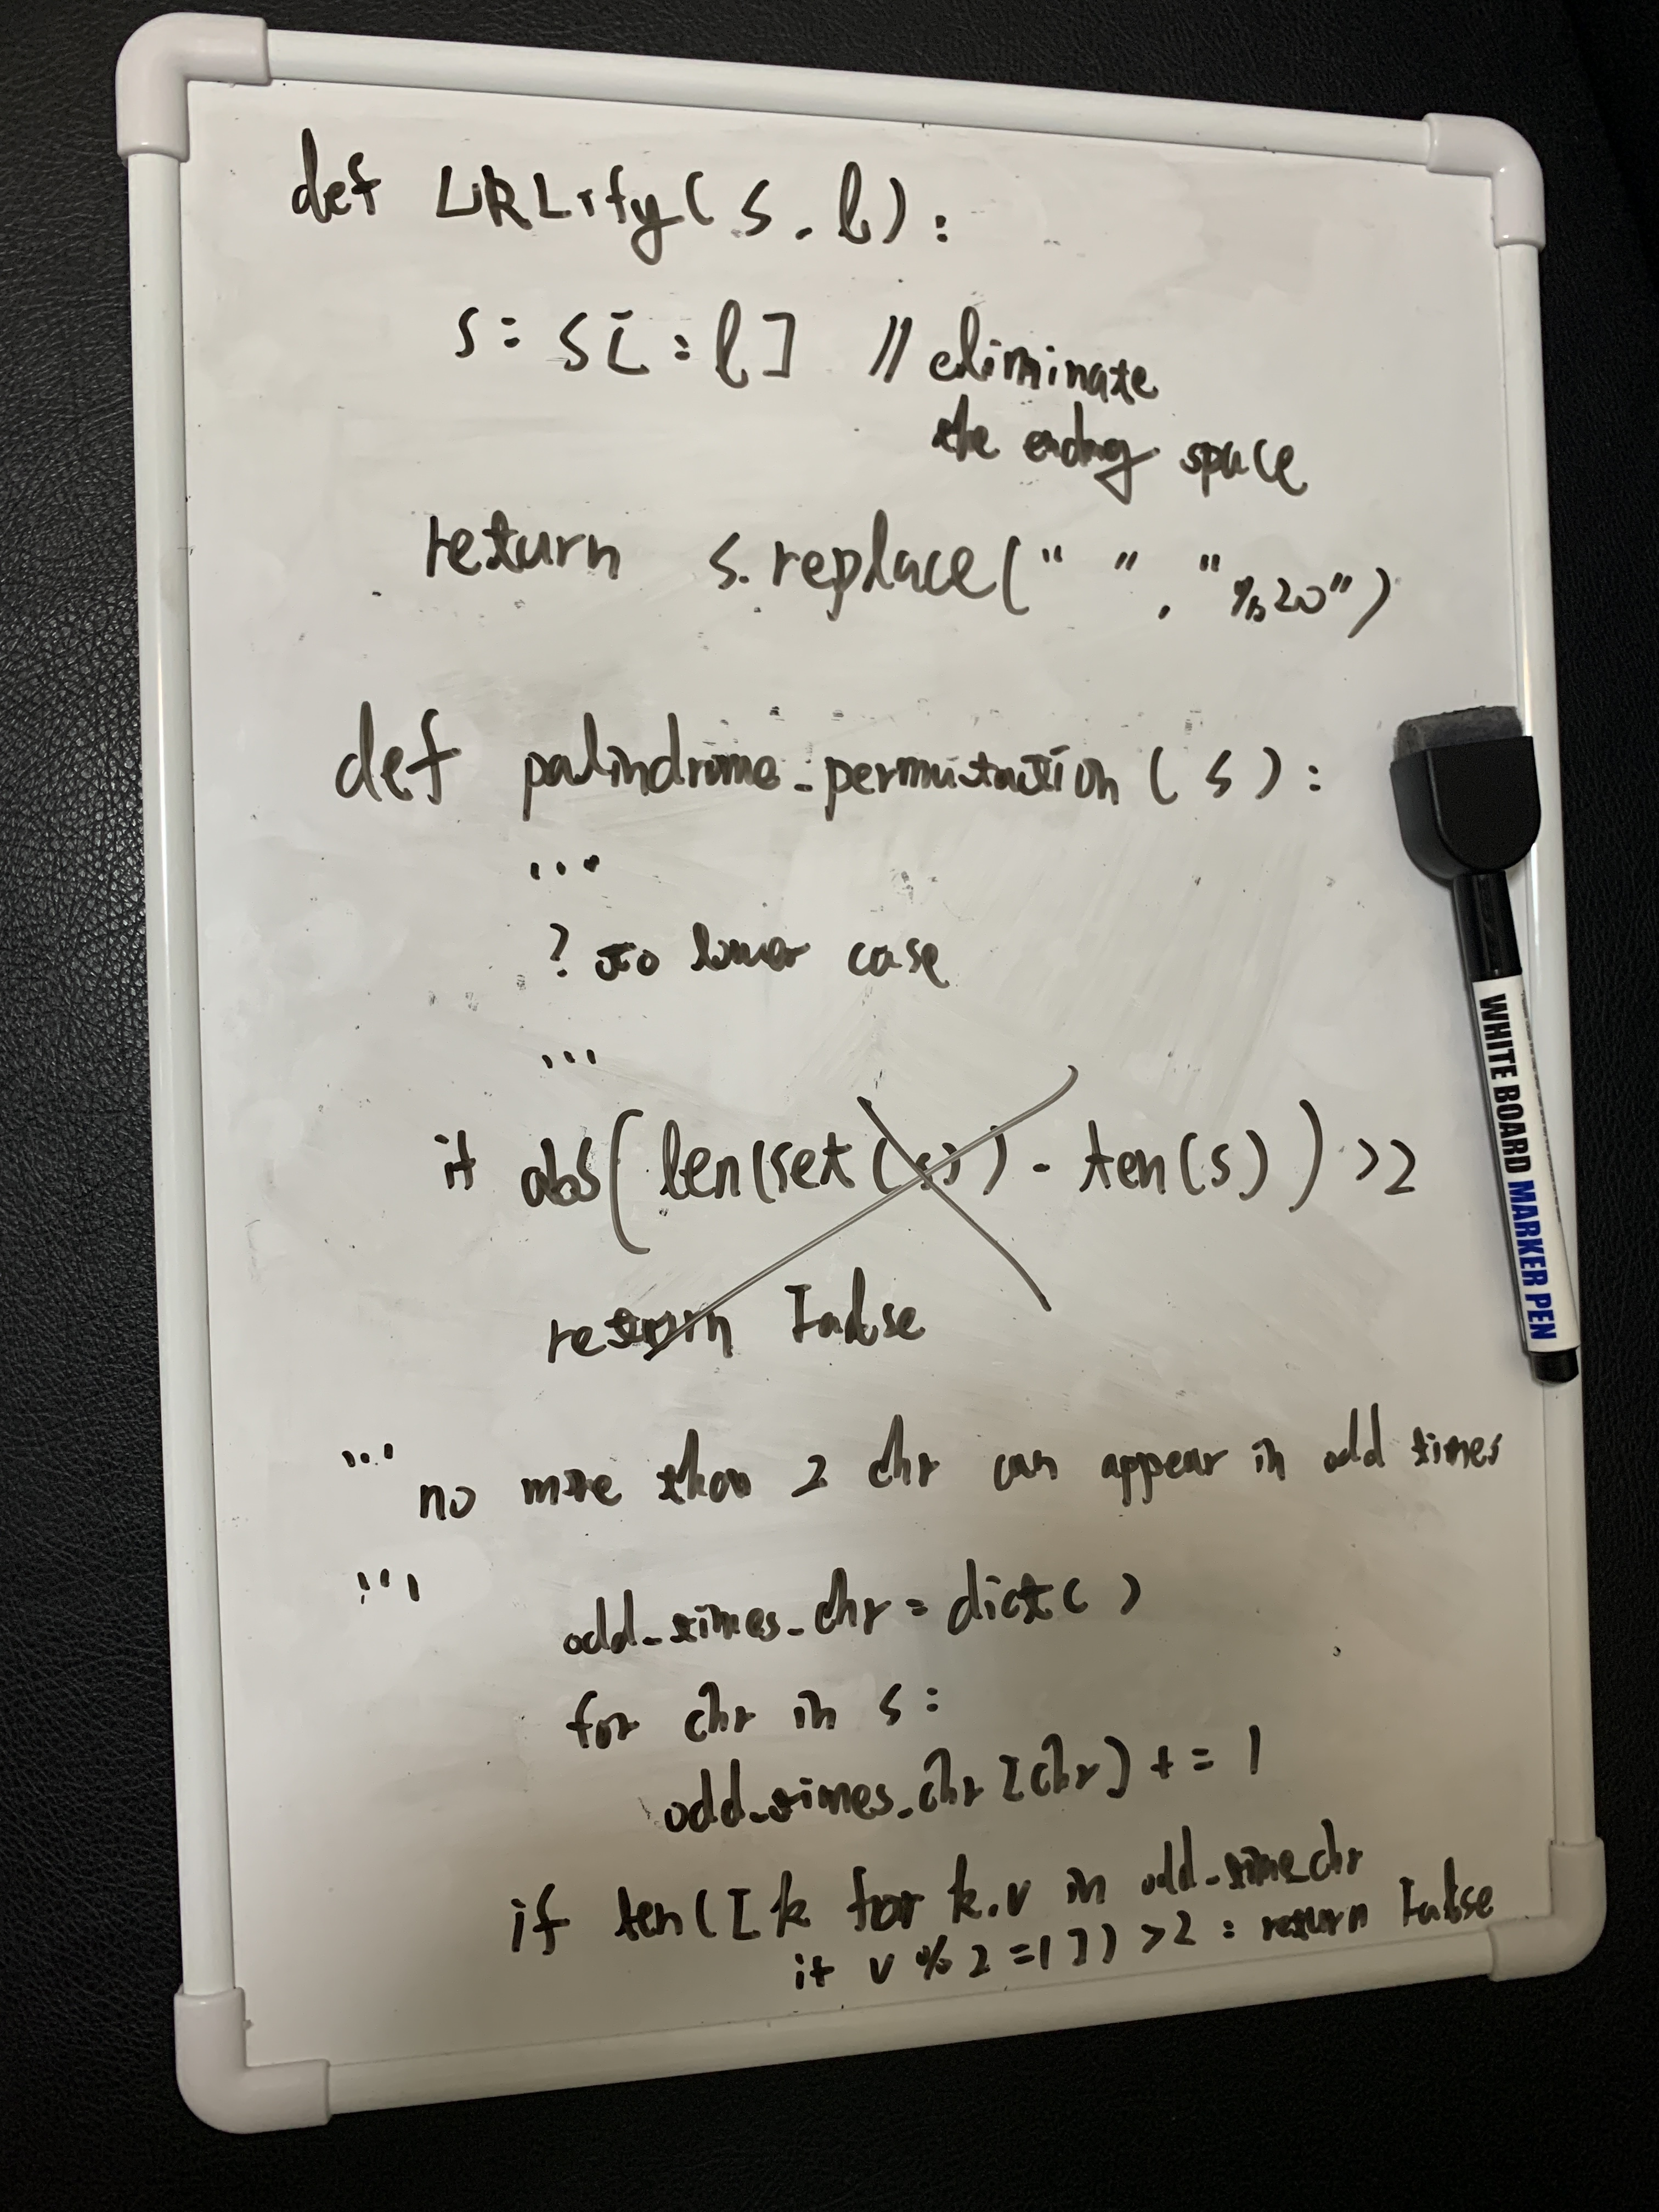 def URLify(s, l):
s = s[:l] // eliminate
the ending space
return s.replace(" ", "%20")
def palindrome_permutation(s):
'''
? to lower case
'''
if abs(len(set(s)) - len(s)) >2
return False
'''
no more than 2 chr can appear in odd times
'''
odd_times_chr = dict()
for chr in s:
odd_times_chr[chr] += 1
if len([k for k,v in odd_time_chr
if v % 2 =1]) >2 : return False
WHITE BOARD MARKER PEN